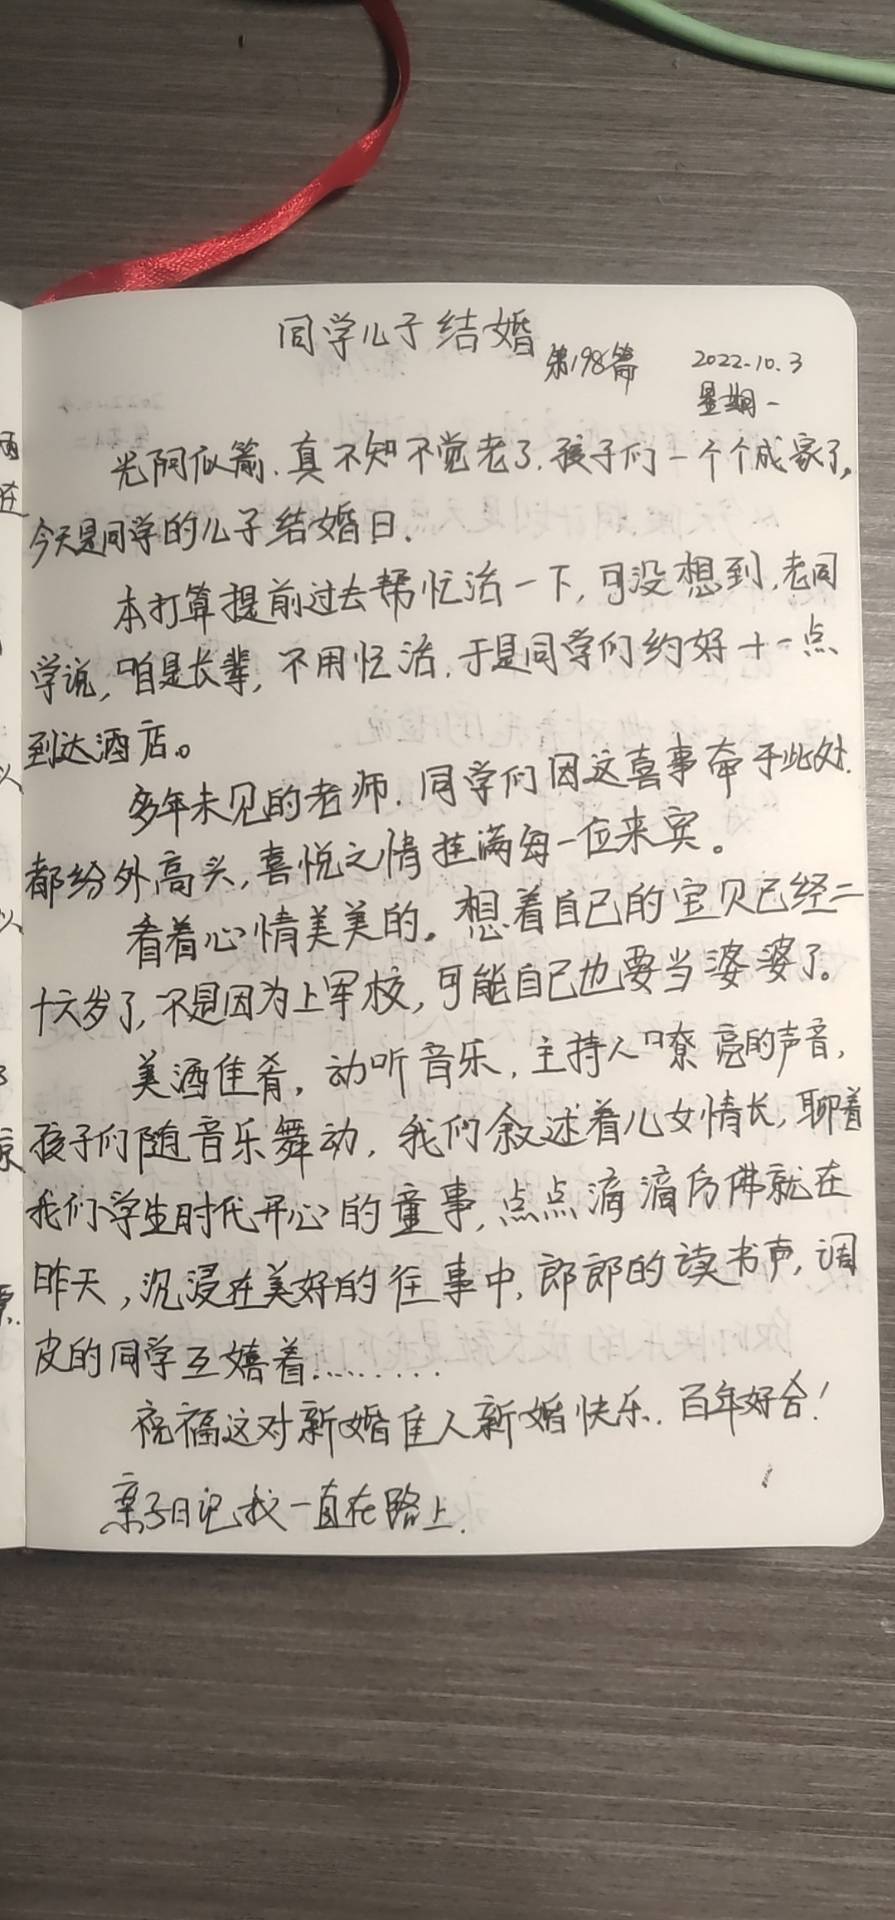 同学儿子结婚
第198篇
2022.10.3
星期一
光阴似箭.真不知不觉老了.孩子们一个个成家了,
今天是同学的儿子结婚日.
本打算提前过去帮忙活一下,可没想到,老同
学说,咱是长辈,不用忙活.于是同学们约好十一点
到达酒店。
多年未见的老师.同学们因这喜事牵于此处.
都纷外高头,喜悦之情挂满每一位来宾。
看着心情美美的。想着自己的宝贝已经二
十六岁了,不是因为上军校,可能自己也要当婆婆了。
美酒佳肴,动听音乐,主持人嘹亮的声音,
孩子们随音乐舞动,我们叙述着儿女情长,聊着
我们学生时代开心的童事,点点滴滴仿佛就在
昨天,沉浸在美好的往事中,郎郎的读书声,调
皮的同学互嬉着.........
祝福这对新婚佳人新婚快乐.百年好合!
亲子日记我一直在路上.